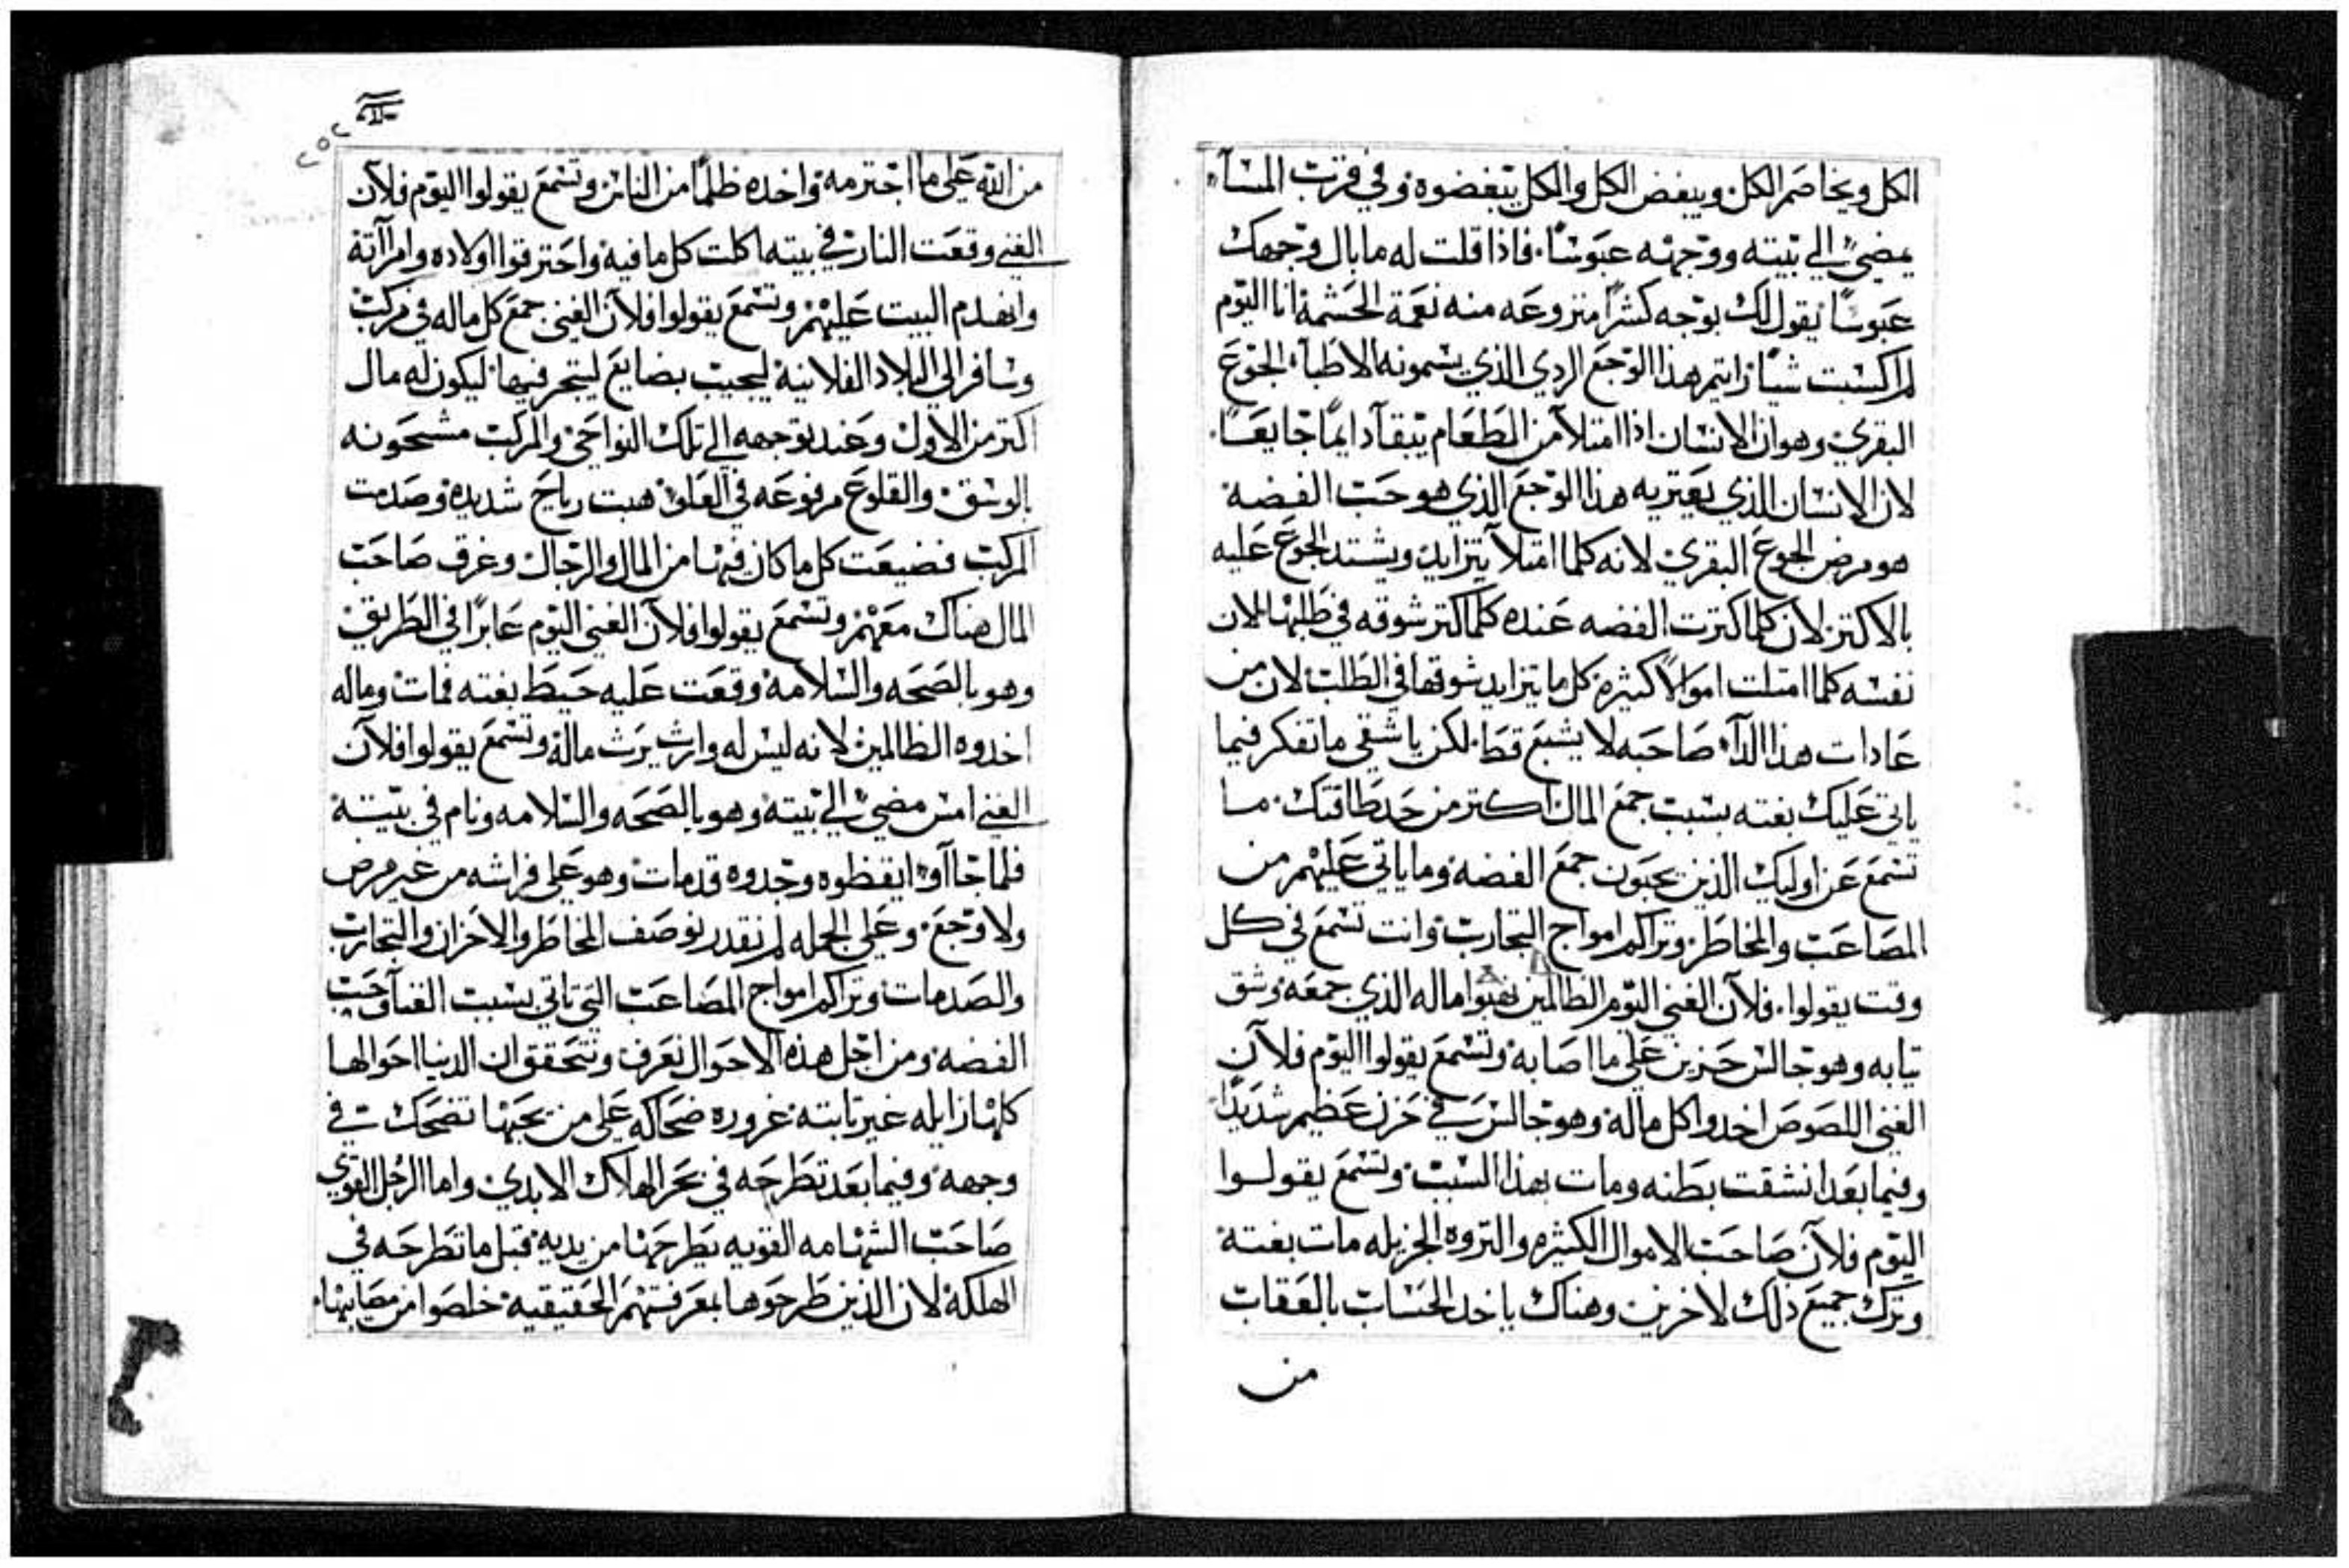 الكل ويخاصم الكل ويبغض الكل والكل يبغضوه وفي قرب المسآء
يمضي الي بيته ووجهه عبوسًا. فاذا قلت له ما بال وجهك
عبوسًا يقول لك بوجه كشرًا منزوعه منه نعمة الحشمة انا اليوم
لم اكسبت شيًا رايتم هذا الوجع الردي الذي يسمونه الاطبآء الجوع
البقري وهو ان الانسان اذا امتلآ من الطعام يبقآ دايمًا جايعًا.
لان الانسان الذي يعتريه هذا الوجع الذي هو حب الفضه
هو مرض الجوع البقري لانه كلما امتلآ يتزايد ويشتد الجوع عليه
بالاكتر لان كلما كترت الفضه عنده كلما كتر شوقه في طلبها لان
نفسه كلما امتلت اموالاً كثيره كل ما يتزايد شوقها في الطلب لان من
عادات هذا الدآء صاحبه لا يشبع قط. لكن يا شقي ما تفكر فيما
ياتي عليك بغته بسبب جمع المال اكتر من حد طاقتك. ما
تسمع عن اوليك الذين يحبون جمع الفضه وما ياتي عليهم من
المصاعب والمخاطر وتراكم امواج التجارب وانت تسمع في كل
وقت يقولوا. فلآن الغني اليوم الظالمين نهبوا ماله الذي جمعه وشق
تيابه وهو جالس حزين علي ما اصابه وتسمع يقولوا اليوم فلآن
الغني اللصوص اخدوا كل ماله وهو جالس في حزن عظيم شديدًا
وفيما بعد انشقت بطنه ومات بهذا السبب وتسمع يقولوا
اليوم فلآن صاحب الاموال الكثيره والتروه الجزيله مات بغتة
وترك جميع ذلك لاخرين وهناك ياخد الحساب بالعقاب
من
٢٥٢
II
من الله علي ما اجترمه واخده ظلمًا من الناس وتسمع يقولوا اليوم فلآن
الغني وقعت النار في بيته اكلت كل ما فيه واحترقوا اولاده وامرآته
وانهدم البيت عليهم وتسمع يقولوا فلآن الغني جمع كل ماله في مركب
وسافر الي البلاد الفلانية ليجيب بضايع ليتجر فيها ليكون له مال
اكتر من الاول وعند توجهه الي تلك النواحي والمركب مشحونه
بالوسق والقلوع مرفوعه في العلو هبت رياح شديده وصدمت
المركب فضيعت كل ما كان فيها من المال والرجال وغرق صاحب
المال هناك معهم وتسمع يقولوا فلآن الغني اليوم عابرًا في الطريق
وهو بالصحه والسلامه وقعت عليه حيط بغته فمات وماله
اخدوه الظالمين لانه ليس له وارث يرث ماله وتسمع يقولوا فلآن
الغني امس مضي الي بيته وهو بالصحه والسلامه ونام في بيته
فلما جآاوا ايقظوه وجدوه قد مات وهو علي فراشه من غير مرض
ولا وجع. وعلي الجمله لم نقدر نوصف المخاطر والاحزان والتجارب
والصدمات وتراكم امواج المصاعب التي تاتي بسبب الغنآ وحب
الفضه ومن اجل هذه الاحوال نعرف ونتحقق ان الدنيا احوالها
كلها زايله غير تابته غروره ضحاكه علي من يحبها تضحك في
وجهه وفيما بعد تطرحه في بحر الهلاك الابدي واما الرجل القوي
صاحب الشهامه القويه يطرحها من يديه قبل ما تطرحه في
الهلكة لان الذين طرحوها بمعرفتهم الحقيقيه خلصوا من مصايبها.